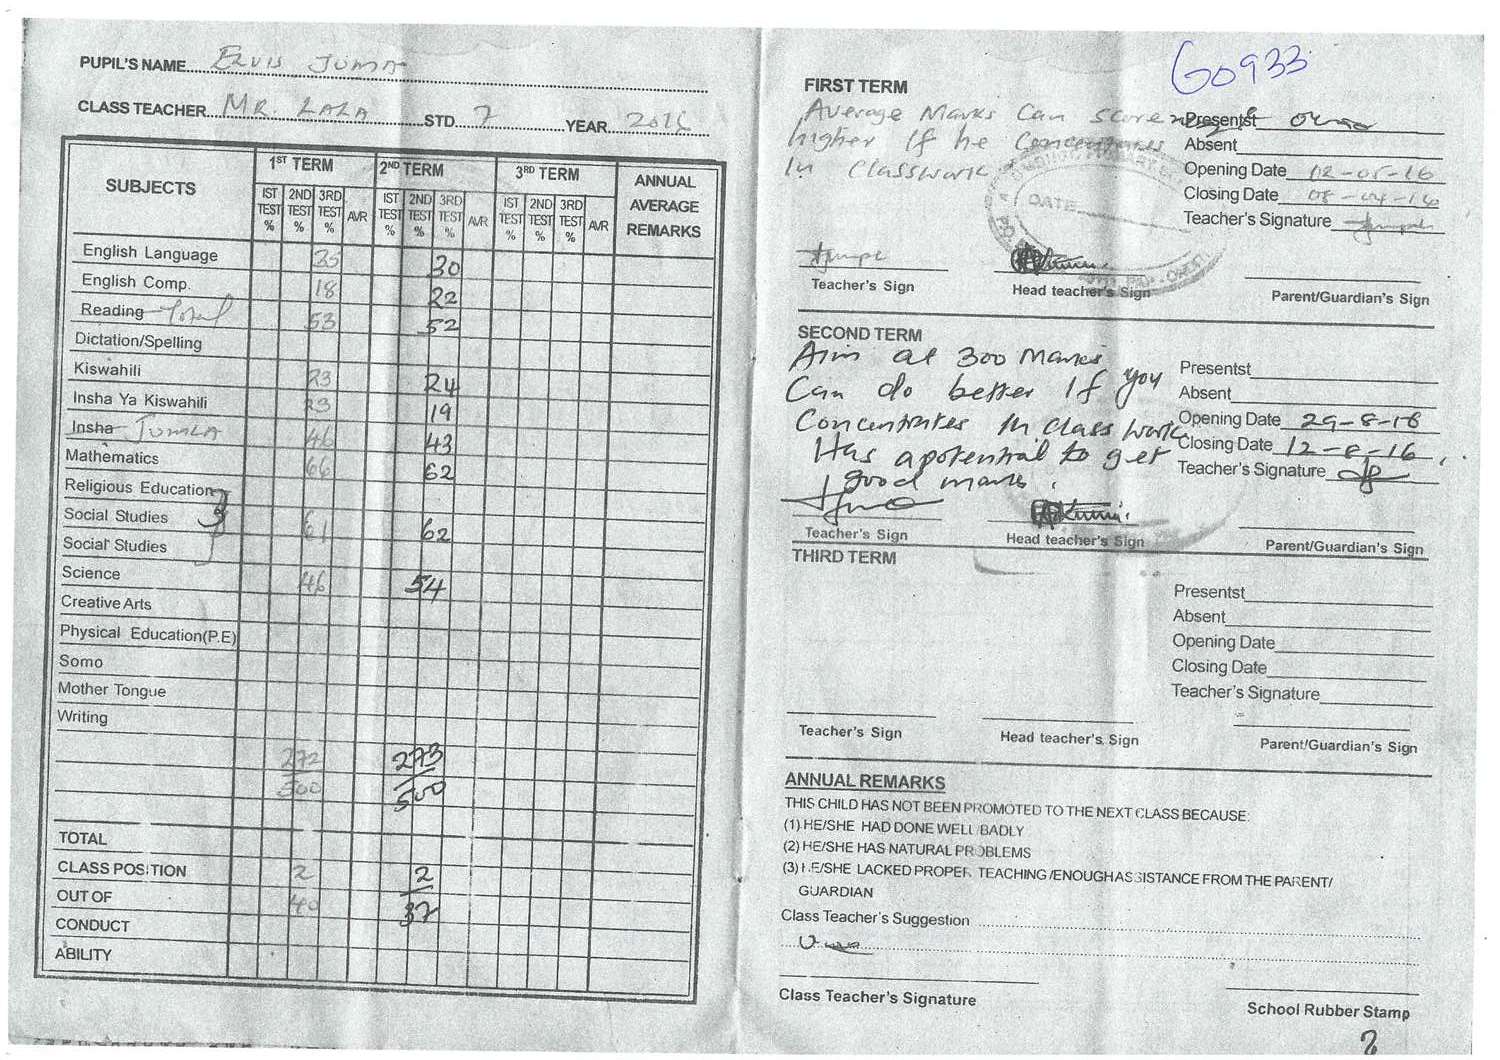 PUPIL'S NAME ELVIS JUMA
CLASS TEACHER MR. LALA STD. 7 YEAR 2016
SUBJECTS 1ST TERM 2ND TERM 3RD TERM ANNUAL AVERAGE REMARKS
IST TEST % 2ND TEST % 3RD TEST % AVR IST TEST % 2ND TEST % 3RD TEST % AVR IST TEST % 2ND TEST % 3RD TEST % AVR
English Language 35 30
English Comp. 18 22
Reading Total 53 52
Dictation/Spelling
Kiswahili 23 24
Insha Ya Kiswahili 23 19
Insha JUMLA 46 43
Mathematics 66 62
Religious Education
Social Studies 61 62
Social Studies
Science 46 54
Creative Arts
Physical Education(P.E)
Somo
Mother Tongue
Writing
272 273
500 500
TOTAL
CLASS POSITION 2 2
OUT OF 40 37
CONDUCT
ABILITY
G0933
FIRST TERM
Average Marks Can score
higher If he Concentrates
In Classwork
Presentst
Absent
Opening Date 02-05-16
Closing Date 08-04-16
Teacher's Signature
DATE
Teacher's Sign Head teacher's Sign Parent/Guardian's Sign
SECOND TERM
Aim at 300 Marks
Can do better If you
Concentrates In class work
Has a potential to get
good marks.
Presentst
Absent
Opening Date 29-8-16
Closing Date 12-8-16
Teacher's Signature
Teacher's Sign Head teacher's Sign Parent/Guardian's Sign
THIRD TERM
Presentst
Absent
Opening Date
Closing Date
Teacher's Signature
Teacher's Sign Head teacher's Sign Parent/Guardian's Sign
ANNUAL REMARKS
THIS CHILD HAS NOT BEEN PROMOTED TO THE NEXT CLASS BECAUSE:
(1) HE/SHE HAD DONE WELL/BADLY
(2) HE/SHE HAS NATURAL PROBLEMS
(3) HE/SHE LACKED PROPER TEACHING/ENOUGH ASSISTANCE FROM THE PARENT/
GUARDIAN
Class Teacher's Suggestion
Class Teacher's Signature School Rubber Stamp